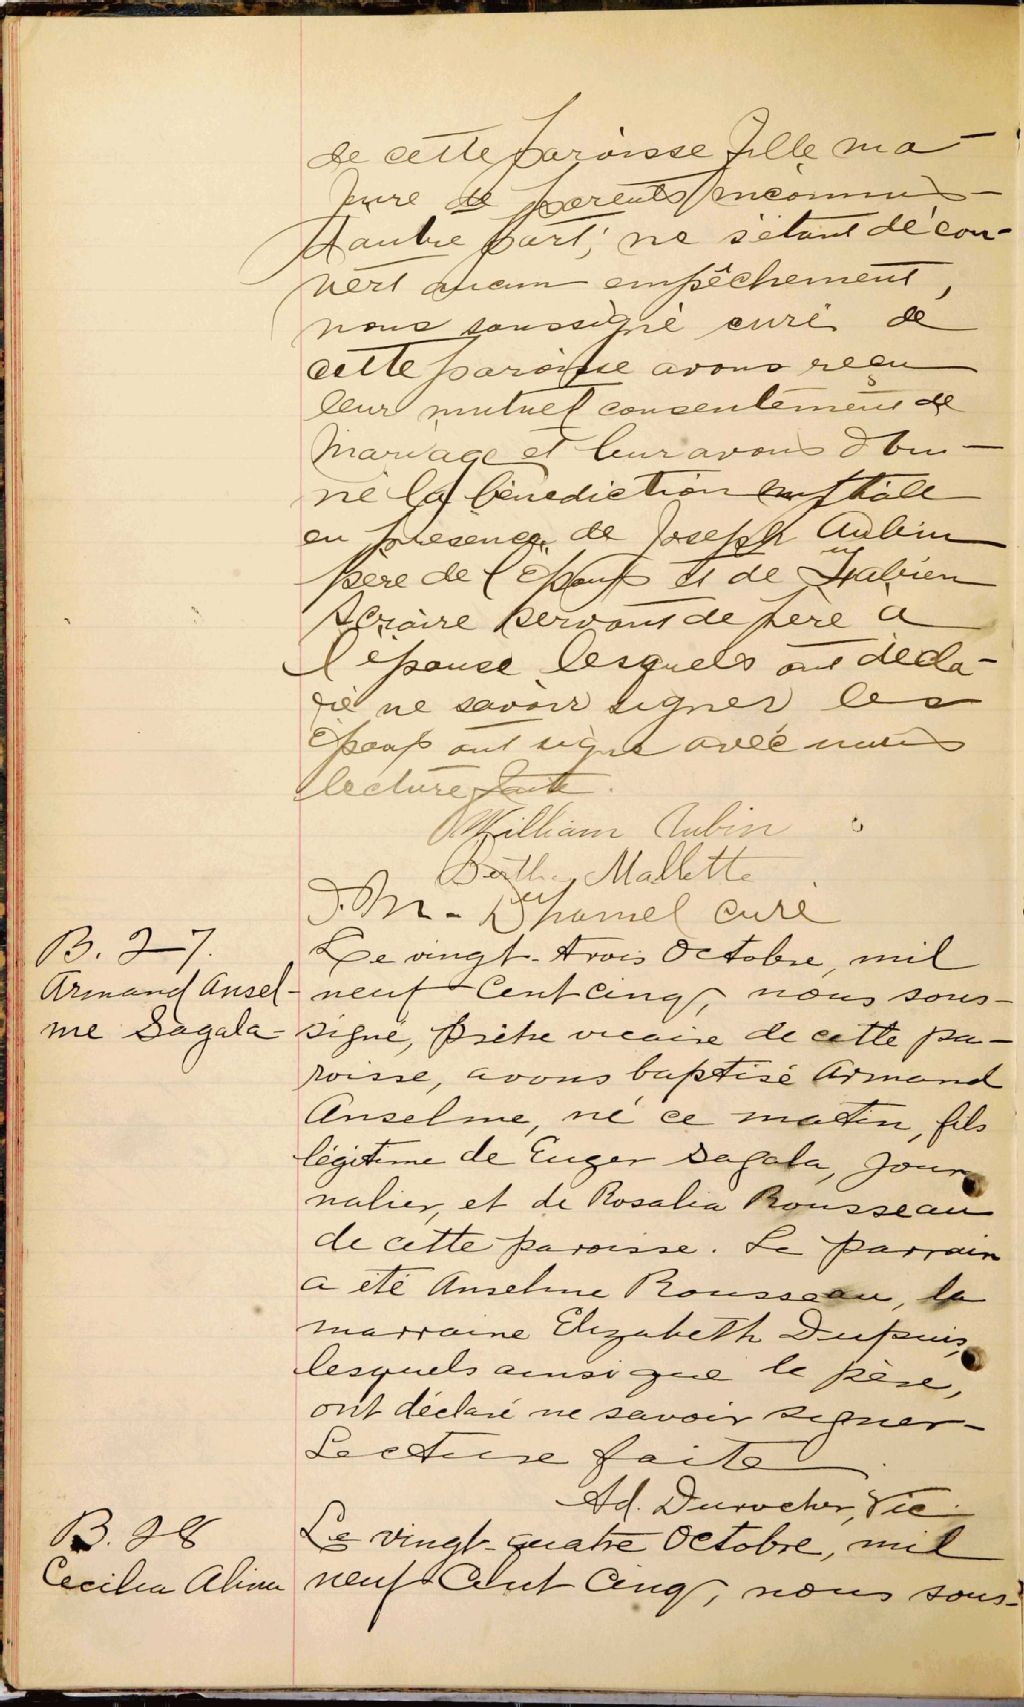 de cette paroisse fille ma-
jeure de parents inconnus-
d'autre part; ne s'étant décou-
vert aucun empêchement,
nous soussigné curé de
cette paroisse avons reçu
leur mutuel consentement de
mariage et leur avons don-
né la bénédiction nuptiale
en présence de Joseph Aubin
père de l'époux et de Fabien
servant de père à
l'épouse lesquels ont décla-
ré ne savoir signer les
époux ont signé avec nous
lecture faite.
William Aubin
Bertha Mallette
J. M. Duhamel curé
B. 27.
Armand Ansel-
me Sagala-
Le vingt-trois Octobre, mil
neuf-Cent cinq, nous sous-
signé, prêtre vicaire de cette pa-
roisse, avons baptisé Armand
Anselme, né ce matin, fils
légitime de Euger Sagala, jour
nalier, et de Rosalia Rousseau
de cette paroisse. Le parrain
a été Anselme Rousseau, la
marraine Elizabeth Dupuis,
lesquels ainsi que le père,
ont déclaré ne savoir signer-
Lecture faite
Ad. Durocher, Vic.
B. 28
Cécilia Alima
Le vingt-quatre Octobre, mil
neuf-Cent Cinq, nous sous-